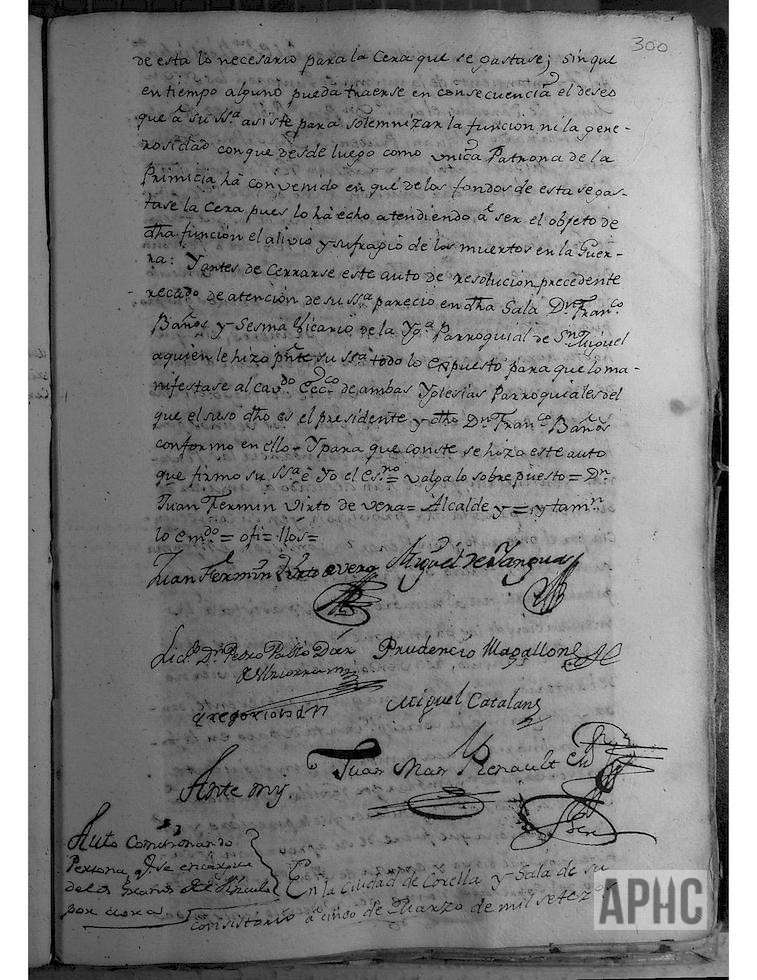 300
de esta lo necesario para la Cera que se gastase; sin que
en tiempo alguno pueda traerse en consecuencia el deseo
que á su SSa. asiste para solemnizar la funcion ni la gene-
rosidad con que desde luego como vnica Patrona de la
Primicia há convenido en que de los fondos de esta se gas-
tase la Cera pues lo há echo atendiendo á ser el objeto de
dha funcion el alivio y sufragio de los muertos en la Guer-
ra: Y antes de Cerrarse este auto de resolucion precedente
recado de atencion de su SSa. parecio en dha Sala Dn. Franco.
Baños y Sesma Vicario de la Yga. Parroquial de Sn. Miguel
a quien le hizo pnte su SSa. todo lo expuesto para que lo ma-
nifestase al cavdo. Eccco. de ambas Yglesias Parroquiales del
que el suso dho es el presidente y dho Dn. Franco. Baños
conformo en ello - Y para que conste se hizo este auto
que firmo su SSa. é Yo el Esno. = valga lo sobre puesto = Dn.
Juan Fermin Virto de vera = Alcalde y = y tamn.
lo emdo. = ofi = llos =
Juan Fermin Virto de vera Miguel de Yangua
Licdo. Dn. Pedro Pablo Prudencio Magallon
Miguel Catalan
Ante mi Juan Renault
Auto Comisionando
Persona q. se encargue
de los
por aora
En la Ciudad de Corella y Sala de su
Consistorio á cinco de Marzo de mil setezos.
APHC